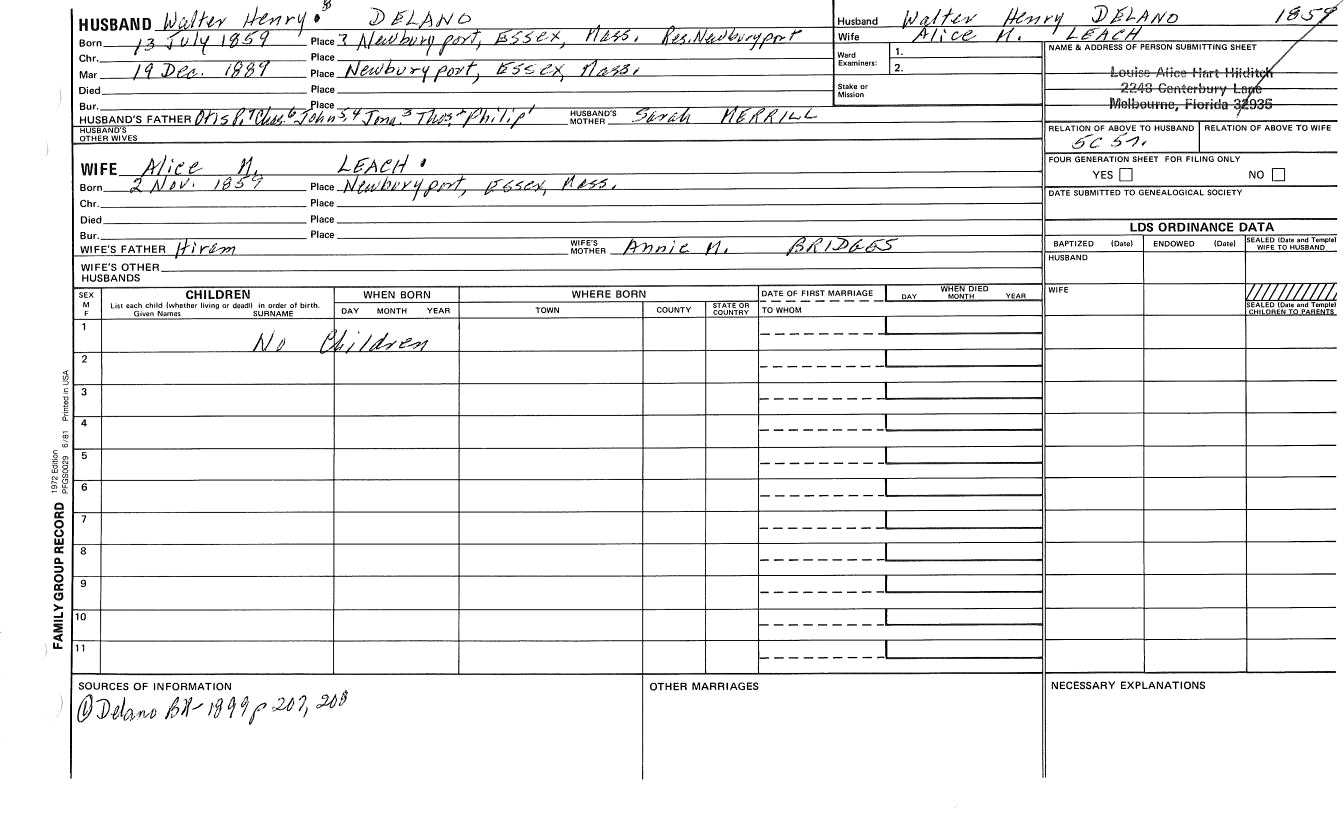 HUSBAND Walter Henry 8 DELANO
Born 13 July 1859 Place ? Newburyport, Essex, Mass. Res. Newburyport
Chr. Place
Mar 19 Dec. 1889 Place Newburyport, Essex, Mass.
Died Place
Bur. Place
HUSBAND'S FATHER Otis P.7 Chas.6 John5,4 Jona.3 Thos.2 Philip1 HUSBAND'S MOTHER Sarah MERRILL
HUSBAND'S OTHER WIVES
WIFE Alice M. LEACH
Born 2 Nov. 1859 Place Newburyport, Essex, Mass.
Chr. Place
Died Place
Bur. Place
WIFE'S FATHER Hiram WIFE'S MOTHER Annie M. BRIDGES
WIFE'S OTHER HUSBANDS
Husband Walter Henry DELANO 1859
Wife Alice M. LEACH
Ward Examiners: 1.
2.
Stake or Mission
NAME & ADDRESS OF PERSON SUBMITTING SHEET
Louise Alice Hart Hilditch
2243 Canterbury Lane
Melbourne, Florida 32935
RELATION OF ABOVE TO HUSBAND RELATION OF ABOVE TO WIFE
5C 5r.
FOUR GENERATION SHEET FOR FILING ONLY
YES NO
DATE SUBMITTED TO GENEALOGICAL SOCIETY
LDS ORDINANCE DATA
BAPTIZED (Date) ENDOWED (Date) SEALED (Date and Temple) WIFE TO HUSBAND
HUSBAND
WIFE
SEALED (Date and Temple) CHILDREN TO PARENTS
SEX M F
CHILDREN
List each child (whether living or dead) in order of birth.
Given Names SURNAME
WHEN BORN
DAY MONTH YEAR
WHERE BORN
TOWN COUNTY STATE OR COUNTRY
DATE OF FIRST MARRIAGE
TO WHOM
WHEN DIED
DAY MONTH YEAR
1 No Children
2
3
4
5
6
7
8
9
10
11
FAMILY GROUP RECORD 1972 Edition PFGS0029 6/81 Printed in USA
SOURCES OF INFORMATION
① Delano BK-1899 p 207, 208
OTHER MARRIAGES
NECESSARY EXPLANATIONS